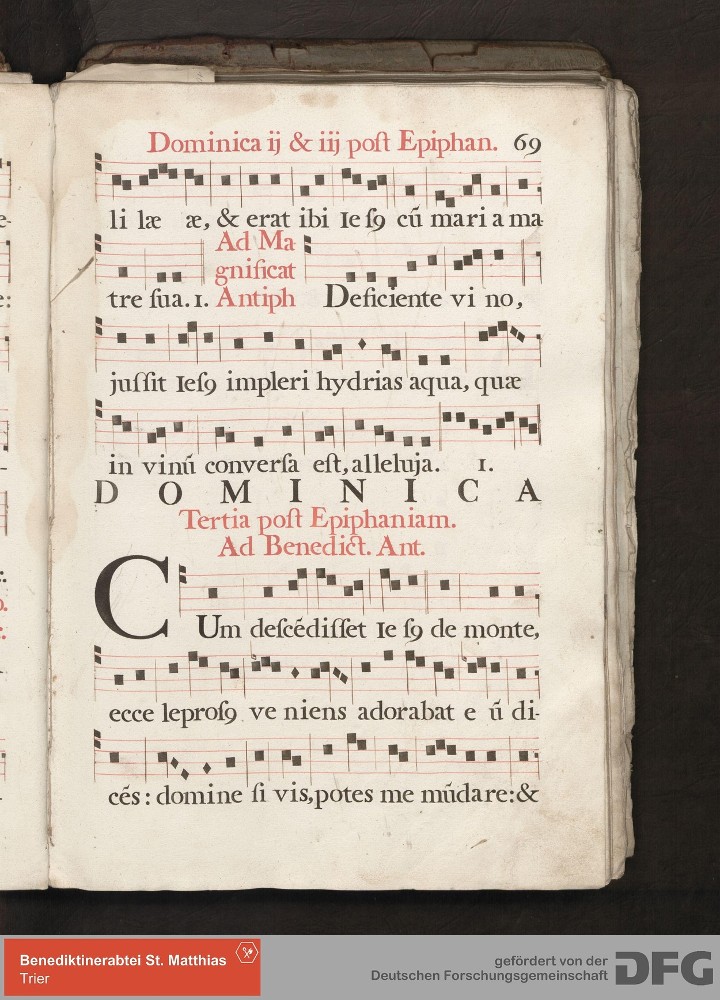 Dominica ij & iij poſt Epiphan. 69
li læ æ, & erat ibi Ieſꝯ cū mari a ma-
tre ſua. 1. Ad Ma-
gnificat
Antiph Deficiente vi no,
juſſit Ieſꝯ impleri hydrias aqua, quæ
in vinū converſa eſt, alleluja. 1.
DOMINICA
Tertia poſt Epiphaniam.
Ad Benedict. Ant.
CUm deſcēdiſſet Ie ſꝯ de monte,
ecce leproſꝯ ve niens adorabat e ū di-
cēs: domine ſi vis, potes me mūdare: &
Benediktinerabtei St. Matthias
Trier
gefördert von der
Deutschen Forschungsgemeinschaft
DFG